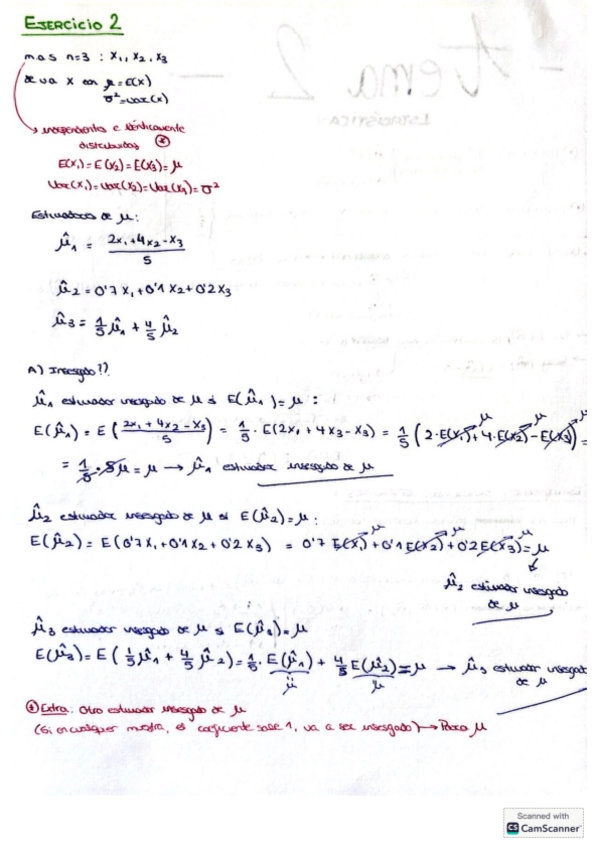 EJERCICIO 2
m.a.s n=3 : X1, X2, X3
de va X con μ = E(X)
σ² = var(X)
→ independientes e idénticamente
distribuidas *
E(X1) = E(X2) = E(X3) = μ
Var(X1) = Var(X2) = Var(X3) = σ²
Estimadores de μ:
μ̂1 = (2X1+4X2-X3)/5
μ̂2 = 0'7X1+0'1X2+0'2X3
μ̂3 = 1/5 μ̂1 + 4/5 μ̂2
A) Insesgado??
μ̂1 estimador insesgado de μ si E(μ̂1) = μ :
E(μ̂1) = E((2X1+4X2-X3)/5) = 1/5 · E(2X1+4X3-X3) = 1/5 (2·E(X1)+4·E(X2)-E(X3)) =
= 1/5 · 5μ = μ → μ̂1 estimador insesgado de μ
μ̂2 estimador insesgado de μ si E(μ̂2) = μ:
E(μ̂2) = E(0'7X1+0'1X2+0'2X3) = 0'7 E(X1)+0'1E(X2)+0'2E(X3) = μ
μ̂2 estimador insesgado
de μ
μ̂3 estimador insesgado de μ si E(μ̂3) = μ
E(μ̂3) = E(1/5 μ̂1 + 4/5 μ̂2) = 1/5 · E(μ̂1) + 4/5 E(μ̂2) = μ → μ̂3 estimador insesgado
μ μ de μ
* Extra: Otro estimador insesgado de μ
(Si en cualquier muestra, el coeficiente sale 1, va a ser insesgado) → Para μ
Scanned with
CS CamScanner